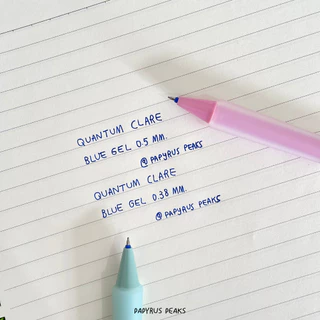 QUANTUM CLARE
BLUE GEL 0.5 MM.
@ PAPYRUS PEAKS
QUANTUM CLARE
BLUE GEL 0.38 MM.
@ PAPYRUS PEAKS
PAPYRUS PEAKS